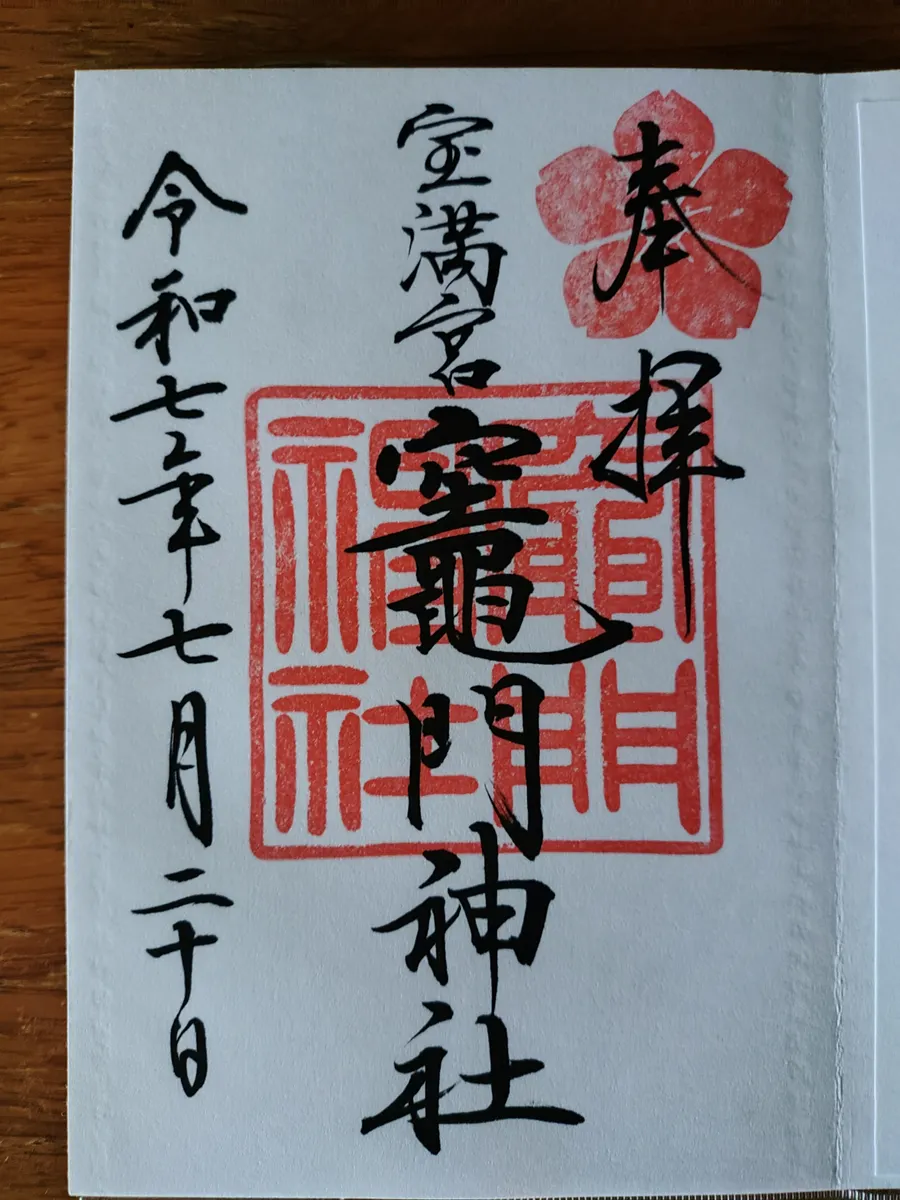 奉拝
宝満宮竈門神社
令和七年七月二十日
竈門
神社